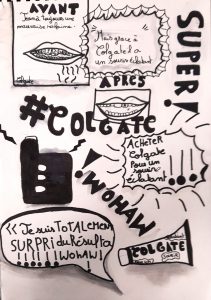 AVANT
Jean à toujours une
mauvaise haleine.
Mais grace à
Colgate il a
un sourire éclatant
SUPER!
Colgate
APRES
#COLGATE
ACHETER
Colgate
Pour un
sourire
éclatant!!!!
WOHAW!
<< Je suis TOTALEMENT
SURPRI du Résultat
!!!!!! WOHAW!
COLGATE